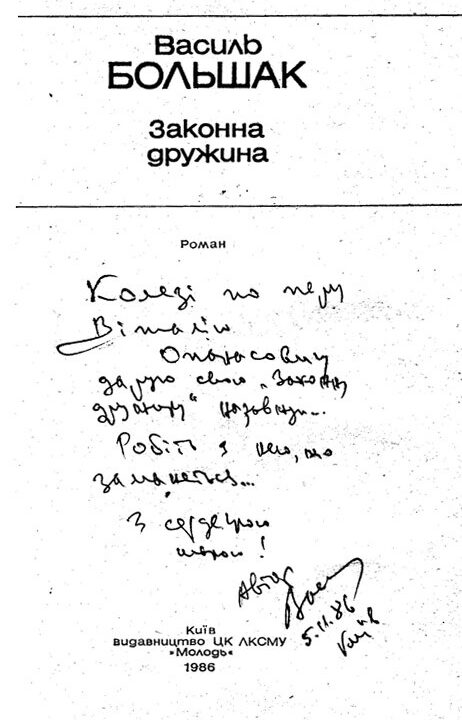 Василь
БОЛЬШАК
Законна
дружина
Роман
Колезі по перу
Віталію
Опанасовичу
дарую свою „Законну
дружину" назавжди...
Робіть з нею, що
заманеться...
З сердечною
шаною!
Автор
5.11.86
Київ
Київ
видавництво ЦК ЛКСМУ
»Молодь«
1986